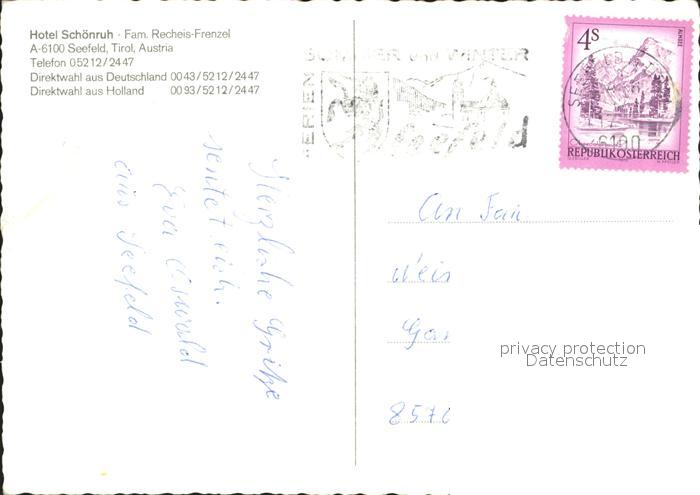 Hotel Schönruh · Fam. Recheis-Frenzel
A-6100 Seefeld, Tirol, Austria
Telefon 05212/2447
Direktwahl aus Deutschland 0043/5212/2447
Direktwahl aus Holland 0093/5212/2447
SOMMER und WINTER
FERIEN
Seefeld
4S
ALMSEE
6100
REPUBLIK ÖSTERREICH
Herzliche Grüße
sendet euch
Eva Oswald
aus Seefeld
An Fam
Weis
privacy protection
Datenschutz